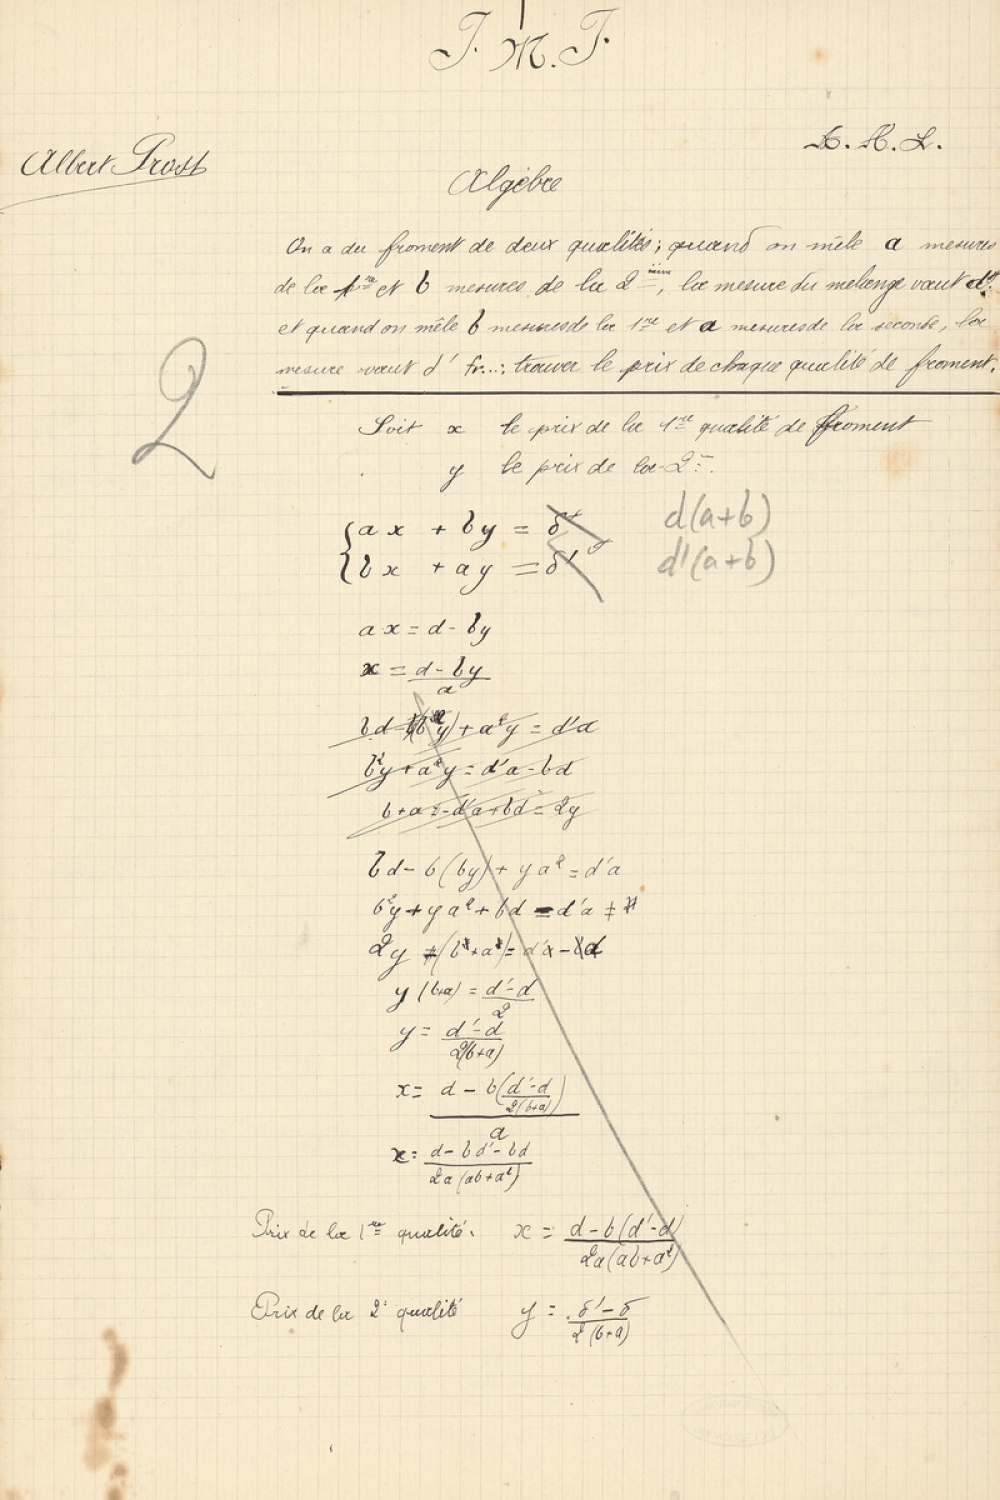 J. M. J.
L. A. L.
Albert Prost
Algèbre
On a du froment de deux qualités; quand on mêle a mesures
de la 1re et b mesures de la 2ième, la mesure du melange vaut df.
et quand on mêle b mesures de la 1re et a mesures de la seconde, la
mesure vaut d' fr...: trouver le prix de chaque qualité de froment.
2
Soit x le prix de la 1re qualité de froment
y le prix de la 2e.
ax + by = δ d(a+b)
bx + ay = δ' d'(a+b)
ax = d - by
x = (d - by)/a
bd - b(by) + a²y = d'a
b²y + a²y = d'a - bd
b+a = -d'a+bd = 2y
bd - b(by) + ya² = d'a
b²y + ya² + bd = d'a
2y (b+a) = d'a - bd
y (b+a) = (d'-d)/2
y = (d'-d)/2(b+a)
x = (d - b((d'-d)/2(b+a)))/a
x = (d - bd' - bd)/2a(ab+a²)
Prix de la 1re qualité: x = (d - b(d'-d))/2a(ab+a²)
Prix de la 2e qualité y = (δ' - δ)/2(b+a)